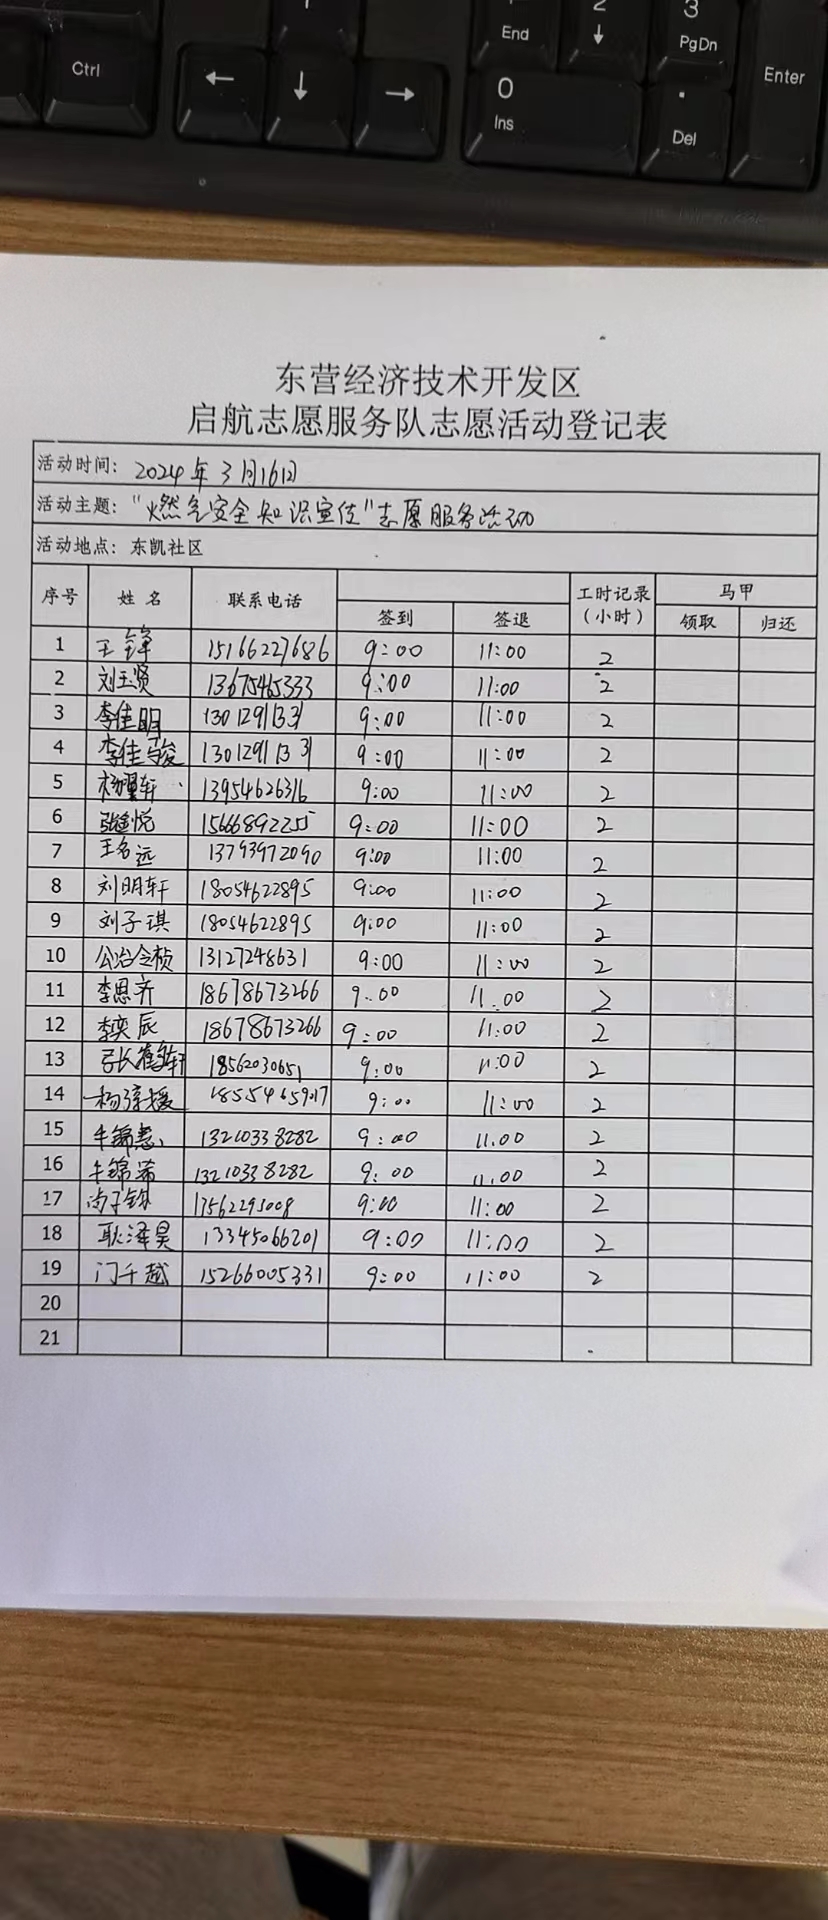 1
2
3
End
↓
PgDn
Ctrl
←
↓
→
0
.
Enter
Ins
Del
东营经济技术开发区
启航志愿服务队志愿活动登记表
活动时间: 2024年3月16日
活动主题: "燃气安全知识宣传"志愿服务活动
活动地点: 东凯社区
序号 姓名 联系电话 工时记录 马甲
签到 签退 (小时) 领取 归还
1 王锋 15166227686 9:00 11:00 2
2 刘玉贤 13675465333 9:00 11:00 2
3 李佳明 9:00 11:00 2
4 李佳骏 9:00 11:00 2
5 杨耀轩 13954626316 9:00 11:00 2
6 悦 15666892255 9:00 11:00 2
7 王名远 13793972090 9:00 11:00 2
8 刘明轩 18054622895 9:00 11:00 2
9 刘子琪 18054622895 9:00 11:00 2
10 公冶令桢 13127248631 9:00 11:00 2
11 李恩齐 18678673266 9:00 11:00 2
12 李奕辰 18678673266 9:00 11:00 2
13 轩 18562030651 9:00 11:00 2
14 杨 9:00 11:00 2
15 牛锦惠 13210338282 9:00 11.00 2
16 牛锦 13210338282 9:00 11.00 2
17 尚子 13562295008 9:00 11:00 2
18 耿泽昊 13345066201 9:00 11:00 2
19 门千越 15266005331 9:00 11:00 2
20
21